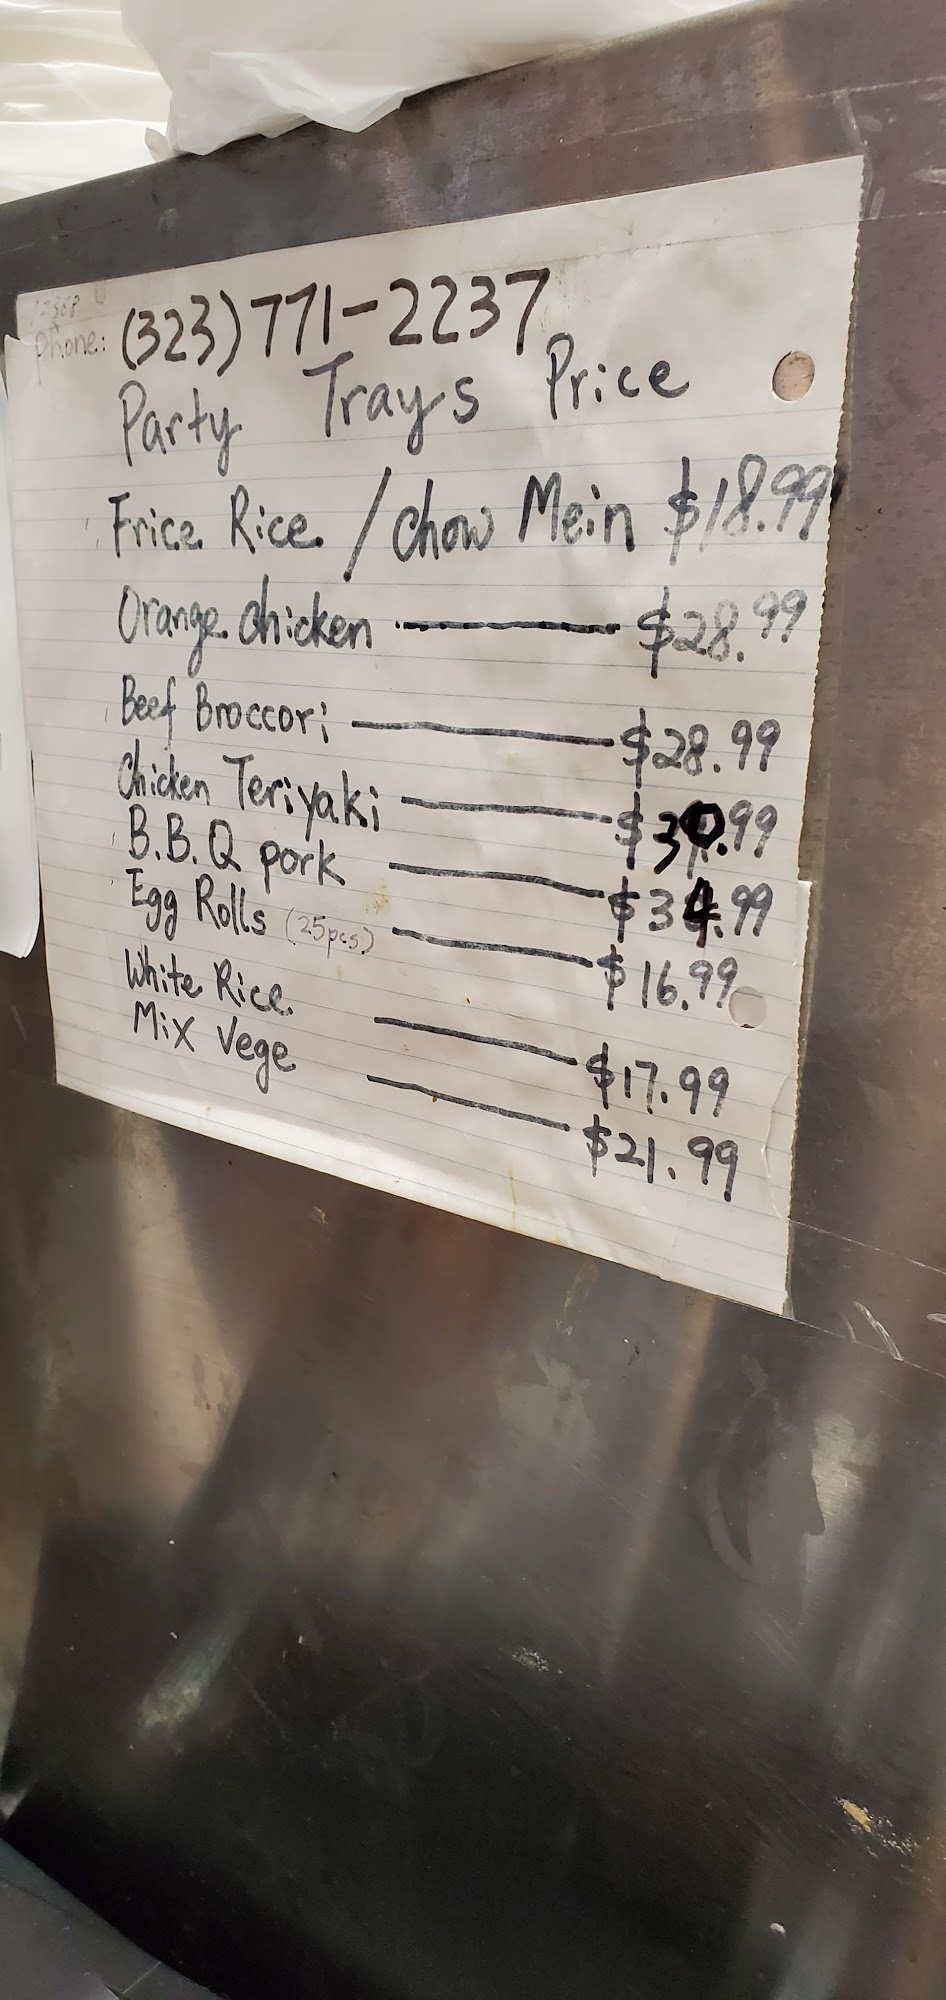 Phone: (323) 771-2237
Party Trays Price
Frice Rice / Chow Mein $18.99
Orange chicken $28.99
Beef Broccori $28.99
Chicken Teriyaki $30.99
B.B.Q pork $34.99
Egg Rolls (25pcs) $16.99
White Rice $17.99
Mix Vege $21.99